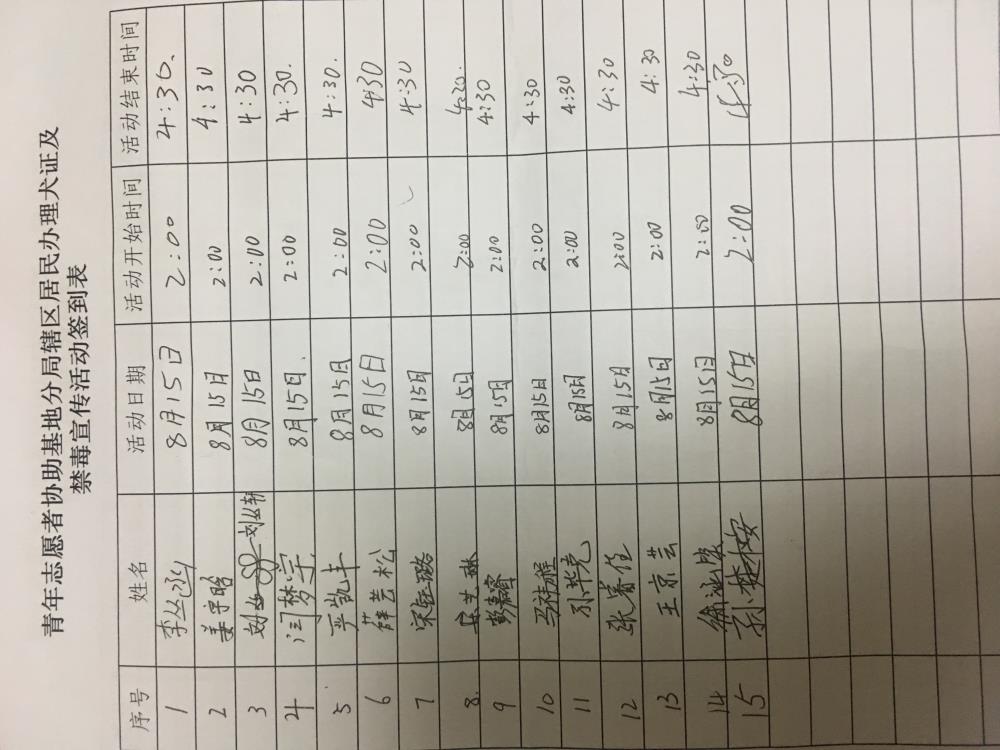 青年志愿者协助基地分局辖区居民办理犬证及
禁毒宣传活动签到表
序号 姓名 活动日期 活动开始时间 活动结束时间
1 李丛 8月15日 2:00 4:30.
2 姜宇晗 8月15日 2:00 4:30
3 刘丛轩 8月15日 2:00 4:30
4 汪梦宇 8月15日. 2:00 4:30.
5 严凯丰 8月15日 2:00 4:30.
6 薛芸松 8月15日 2:00 4:30
7 宋钰璐 8月15日 2:00 4:30
8. 8月15日 2:00 4:30.
9 彭嘉睿 8月15日 2:00 4:30
10 马佳程 8月15日 2:00 4:30
11 孙华尧 8月15日 2:00 4:30
12 张睿任 8月15日 2:00 4:30
13 王京芸 8月15日 2:00 4:30
14 8月15日 2:00 4:30
15 孙楚桉 8月15日 2:00 4:30